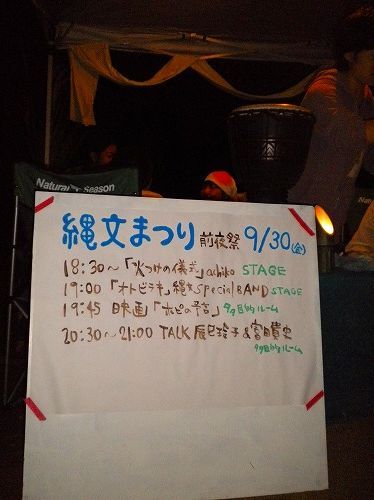 Natural Season
Natural Season
縄文まつり 前夜祭 9/30(金)
18:30～「火つけの儀式」achiko STAGE
19:00 「オトビラキ」縄文special BAND STAGE
19:45 映画「ホピの予言」多目的ルーム
20:30～21:00 TALK 辰巳玲子&冨田貴史
多目的ルーム